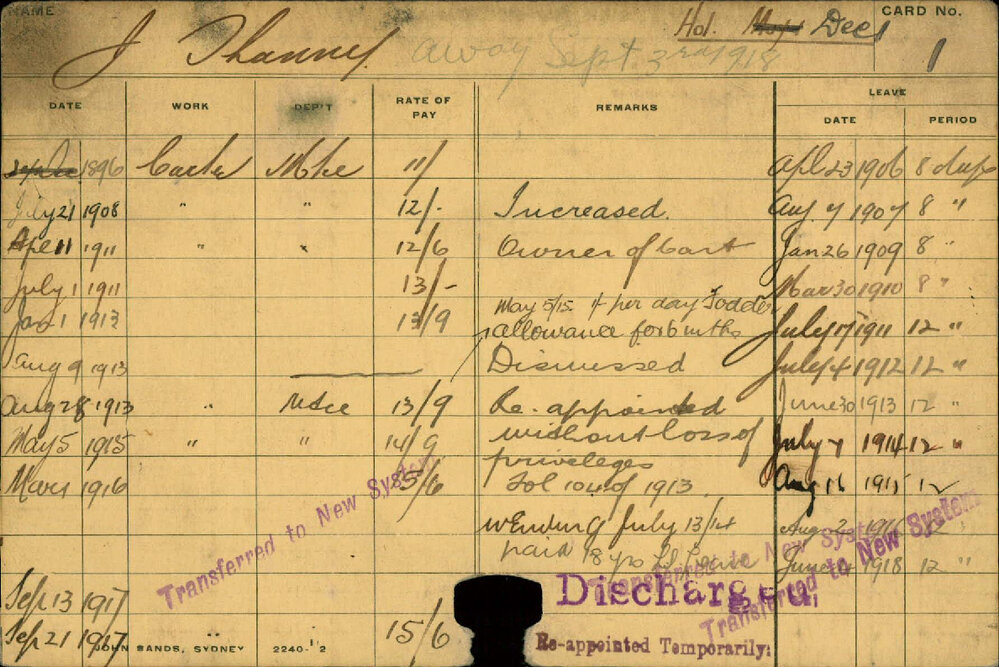 NAME J Hol. Dec CARD No.
away Sept. 3rd 1918 1
DATE WORK DEP'T RATE OF PAY REMARKS LEAVE
DATE PERIOD
1896 Carter 11/ Apl 23 1906 8 days
July 21 1908 " " 12/- Increased. Aug 7 1907 8 "
Apl 11 1911 " " 12/6 Owner of Cart Jan 26 1909 8 "
July 1 1911 13/- Mar 30 1910 8 "
May 5/15. per day Fodder
Jan 1 1913 13/9 allowance for 6 mths July 17 1911 12 "
Aug 9 1913 Dismissed July 4 1912 12 "
Aug 28 1913 " 13/9 Re-appointed June 30 1913 12 "
May 5 1915 " " 14/9 without loss of July 7 1914 12 "
privileges
Mar 1 1916 15/6 Fol 104 of 1913. Aug 16 1915 12
July 13/14 Aug 2
paid 18 yrs June 1918 12 "
Transferred to New System
Transferred to New System
Transferred to New System
Sep 13 1917 Discharged
Sep 21 1917 15/6 Re-appointed Temporarily:
JOHN SANDS, SYDNEY 2240-12